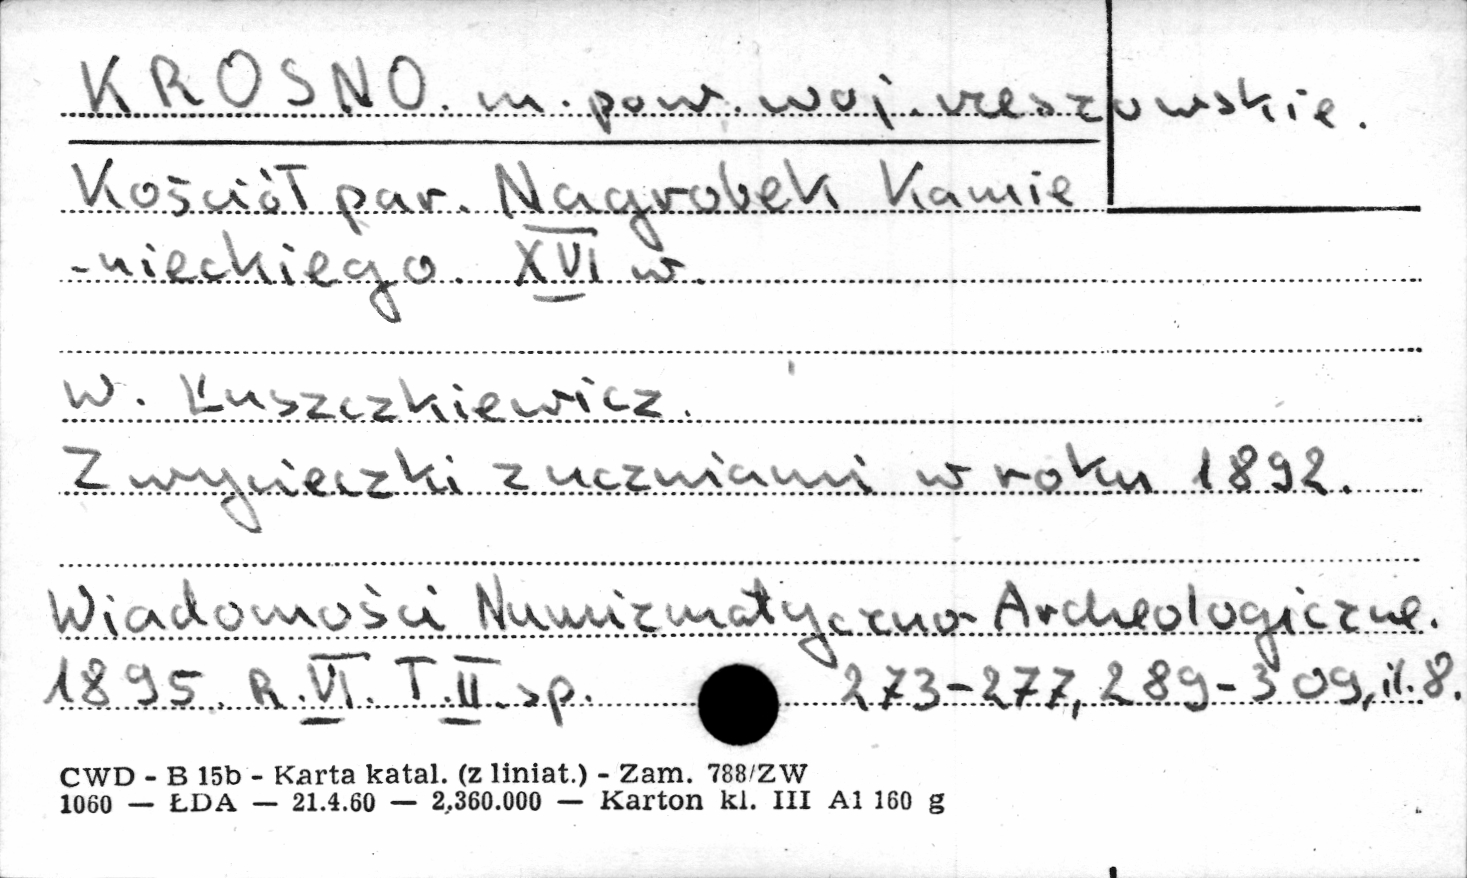 KROSNO. m. pow. woj. rzeszowskie.
Kościół par. Nagrobek Kamie
-nieckiego. XVI w.
W. Łuszczkiewicz.
Z wycieczki z uczniami w roku 1892.
Wiadomości Numizmatyczno-Archeologiczne.
1895. R. VI. T. II. sp. 273-277, 289-309, il. 8.
CWD - B 15b - Karta katal. (z liniat.) - Zam. 788/ZW
1060 — ŁDA — 21.4.60 — 2.360.000 — Karton kl. III A1 160 g